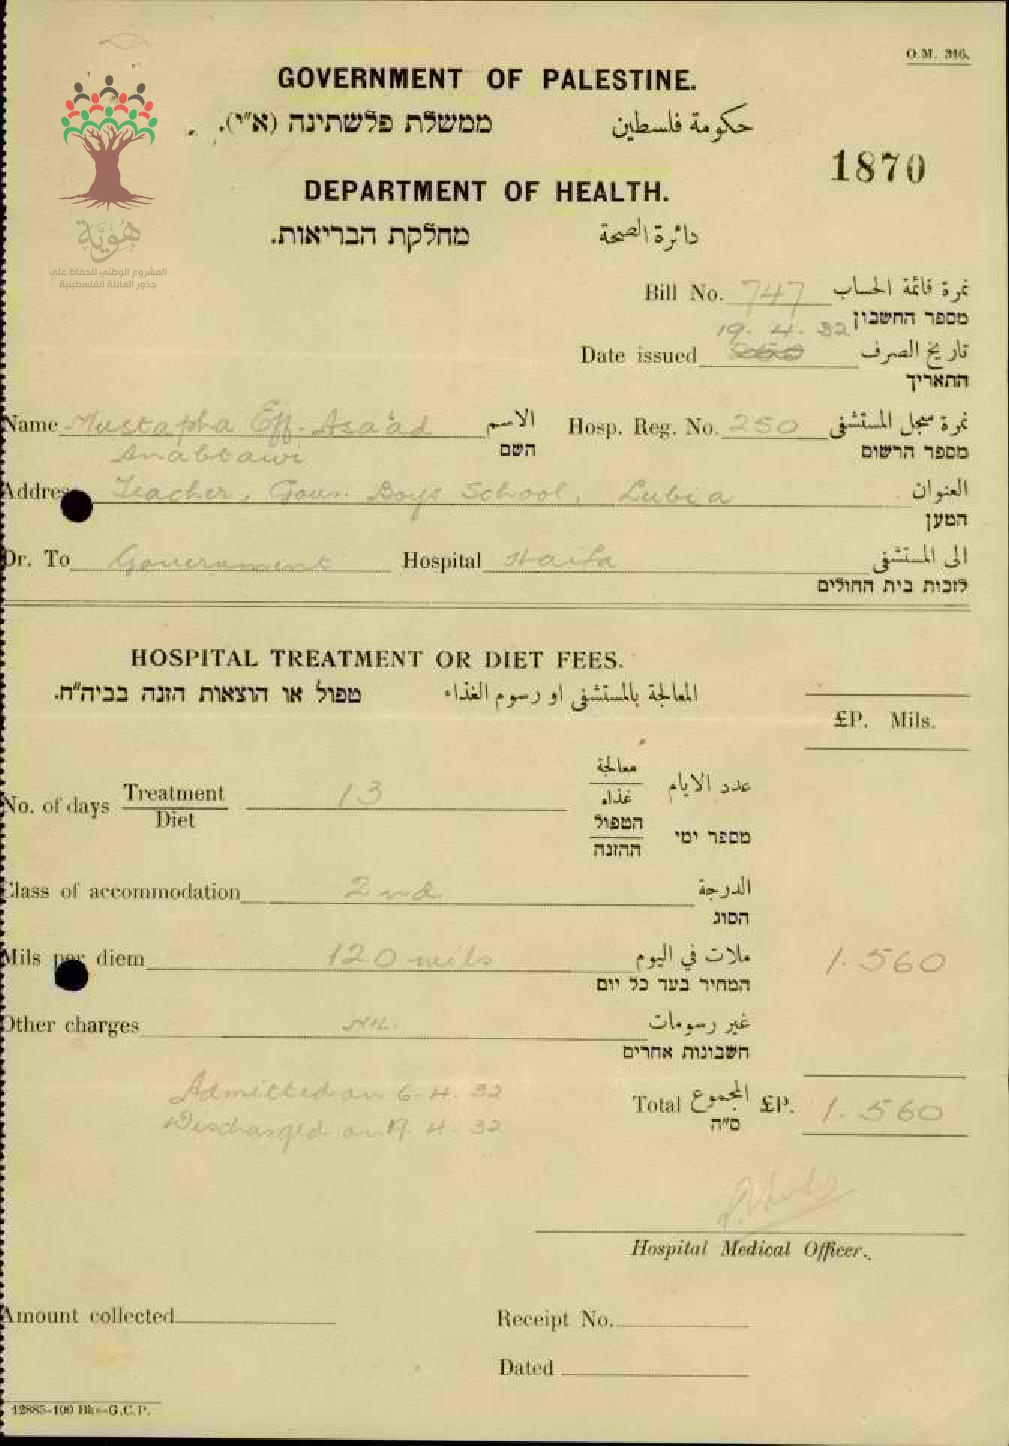 O.M. 316.
GOVERNMENT OF PALESTINE.
ממשלת פלשתינה (א"י). حكومة فلسطين
1870
DEPARTMENT OF HEALTH.
מחלקת הבריאות. دائرة الصحة
هُوِيَّة
المشروع الوطني للحفاظ على
جذور العائلة الفلسطينية
Bill No. 747 نمرة قائمة الحساب
מספר החשבון
19. 4. 32
Date issued تاريخ الصرف
התאריך
Name Mustapha Eff. Asa'ad الاسم Hosp. Reg. No. 250 نمرة سجل المستشفى
Anabtawi השם מספר הרשום
Address Teacher, Gov. Boys School, Lubia العنوان
המען
Dr. To Government Hospital Haifa الى المستشفى
לזכות בית החולים
HOSPITAL TREATMENT OR DIET FEES.
טפול או הוצאות הזנה בביה"ח. المعالجة بالمستشفى او رسوم الغذاء
£P. Mils.
No. of days Treatment 13 معالجة عدد الايام
Diet غذاء
הטפול מספר ימי
ההזנה
Class of accommodation 2nd. الدرجة
הסוג
Mils per diem 120 mils ملات في اليوم 1.560
המחיר בעד כל יום
Other charges NIL. غير رسومات
חשבונות אחרים
Admitted on 6.4.32 Total المجموع £P. 1.560
Discharged on 19.4.32 ס"ה
Hospital Medical Officer.
Amount collected Receipt No.
Dated
12885-100 Bks-G.C.P.